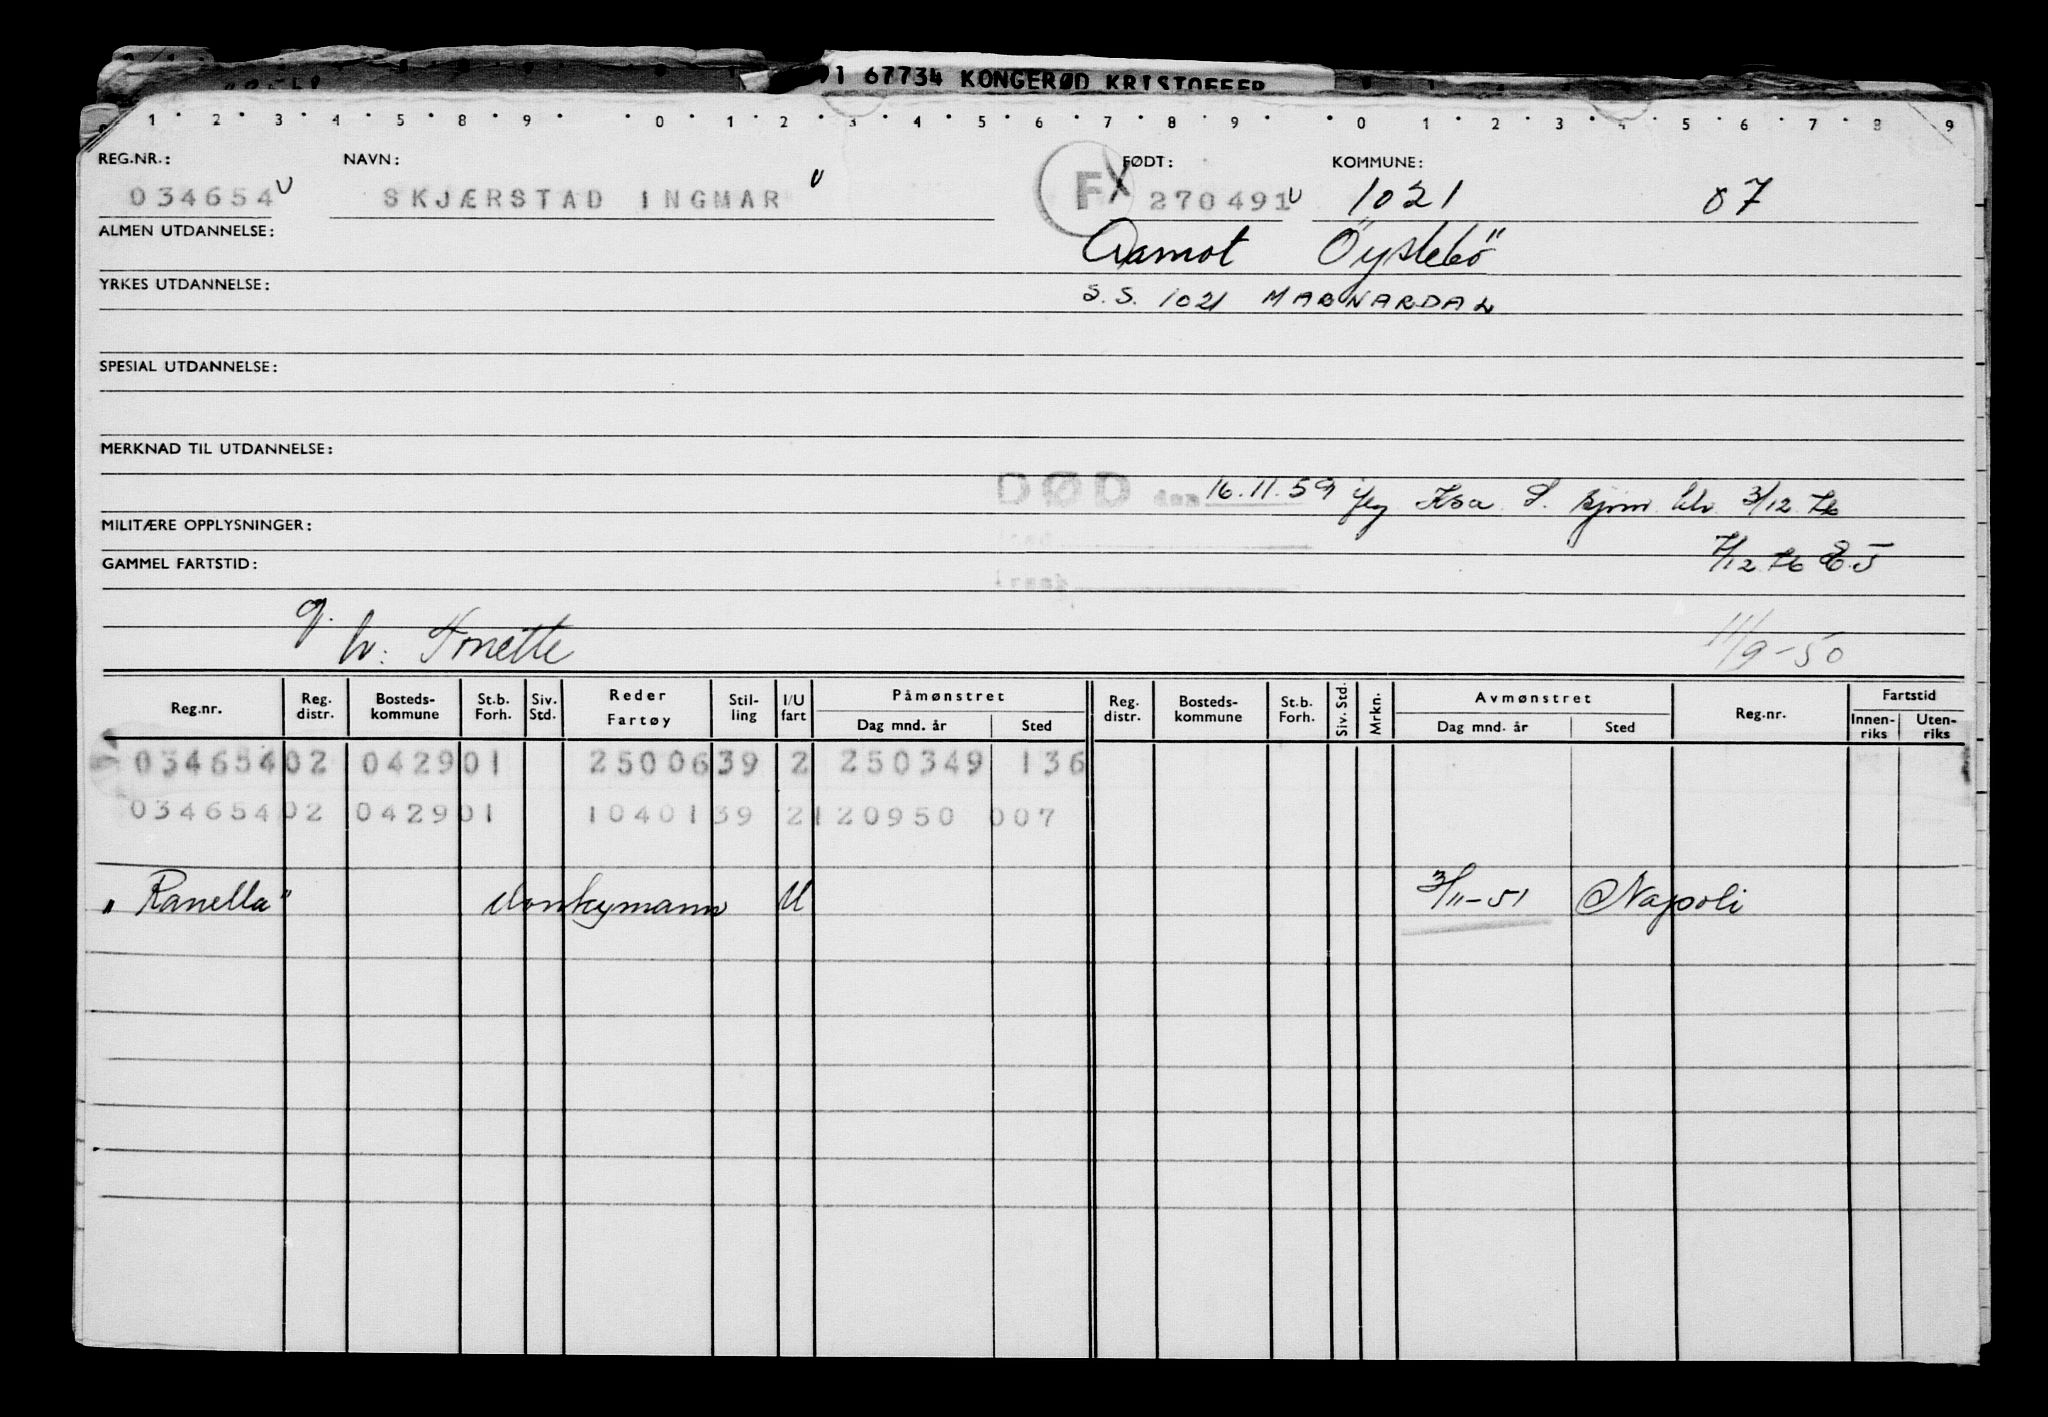 1 67734 KONGERØD KRISTOFFER
1 2 3 4 5 8 9 0 1 2 3 4 5 6 7 8 9 0 1 2 3 4 5 6 7 8 9
REG.NR.: NAVN: FØDT: KOMMUNE:
034654 SKJÆRSTAD INGMAR F 270491 1021 07
ALMEN UTDANNELSE: Aamot Öyslebö
YRKES UTDANNELSE: S.S. 1021 MARNARDAL
SPESIAL UTDANNELSE:
MERKNAD TIL UTDANNELSE:
DØD den 16.11.59 3/12 76
MILITÆRE OPPLYSNINGER:
7/12 76
GAMMEL FARTSTID:
Årsak
g.
h: Tonette 11/9-50
Reg.nr. Reg. distr. Bosteds-kommune St.b. Forh. Siv. Std. Reder Fartøy Stil-ling I/U fart Påmønstret Dag mnd. år Sted Reg. distr. Bosteds-kommune St.b. Forh. Siv. Std. Mrkn. Avmønstret Dag mnd. år Sted Reg.nr. Fartstid Innen-riks Uten-riks
03465402 042901 2500639 2 250349 136
03465402 042901 1040139 2120950 007
"Ranella" donkymann U 3/11-51 Napoli